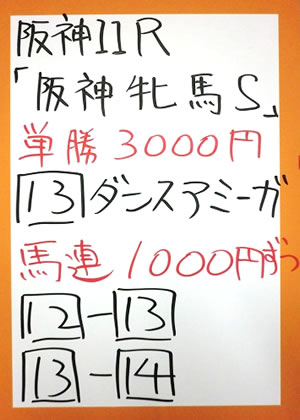 阪神11R
「阪神牝馬S」
単勝3000円
13ダンスアミーガ
馬連1000円ずつ
12-13
13-14